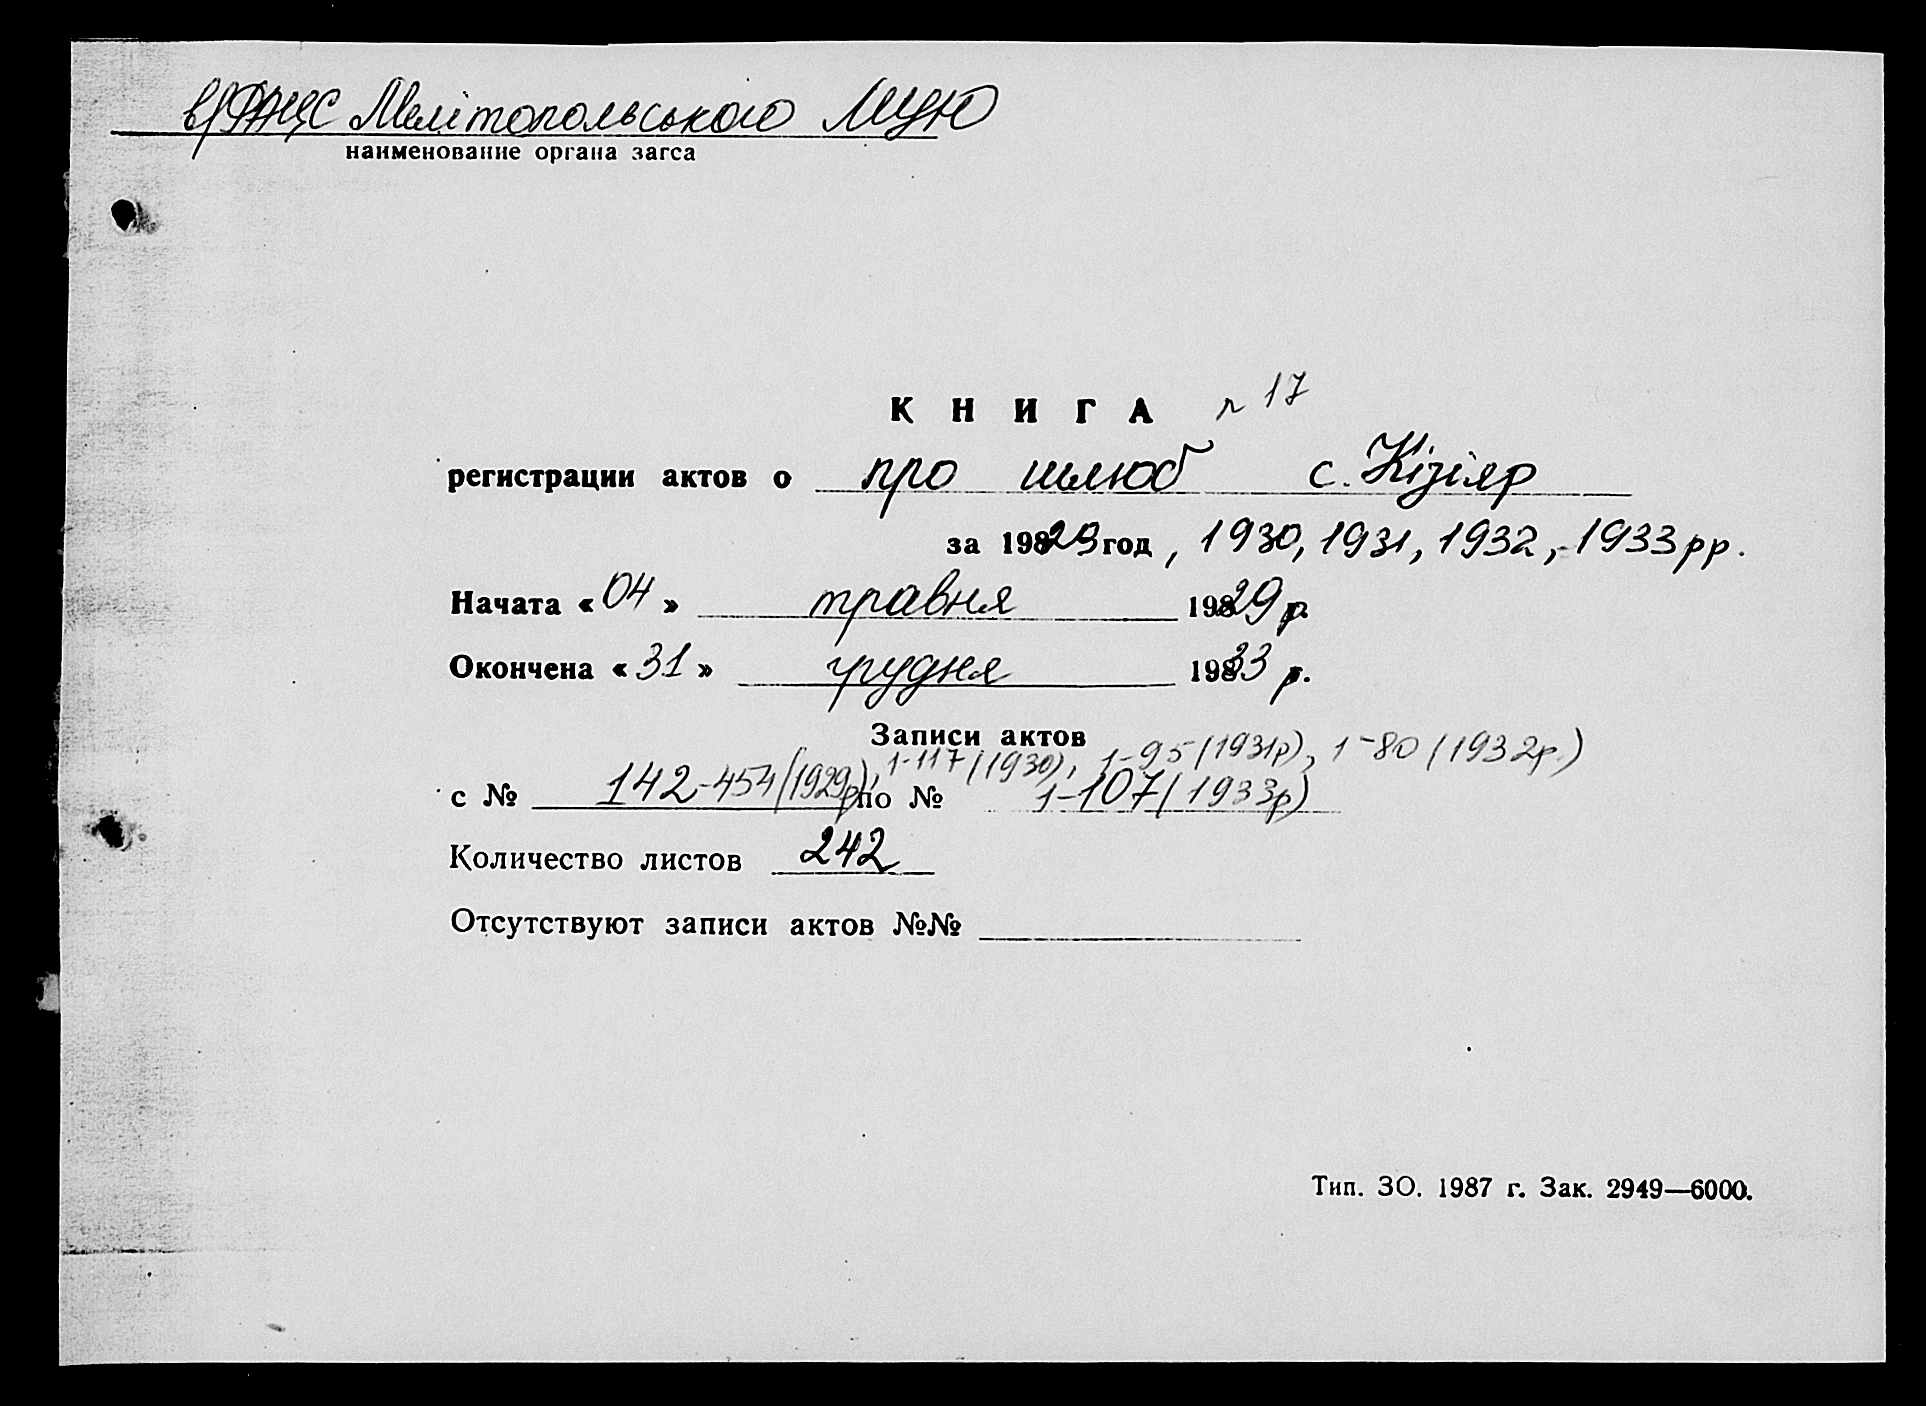 вРАЦС Мелітопольського МЦЮ
наименование органа загса
КНИГА n 17
регистрации актов о про шлюб с. Кізіяр
за 1929 год, 1930, 1931, 1932, 1933 рр.
Начата « 04 » травня 1929 р.
Окончена « 31 » грудня 1933 р.
Записи актов
1-117 (1930), 1-95 (1931р), 1-80 (1932р.)
с № 142-454 (1929р), по № 1-107 (1933р)
Количество листов 242
Отсутствуют записи актов №№
Тип. ЗО. 1987 г. Зак. 2949—6000.